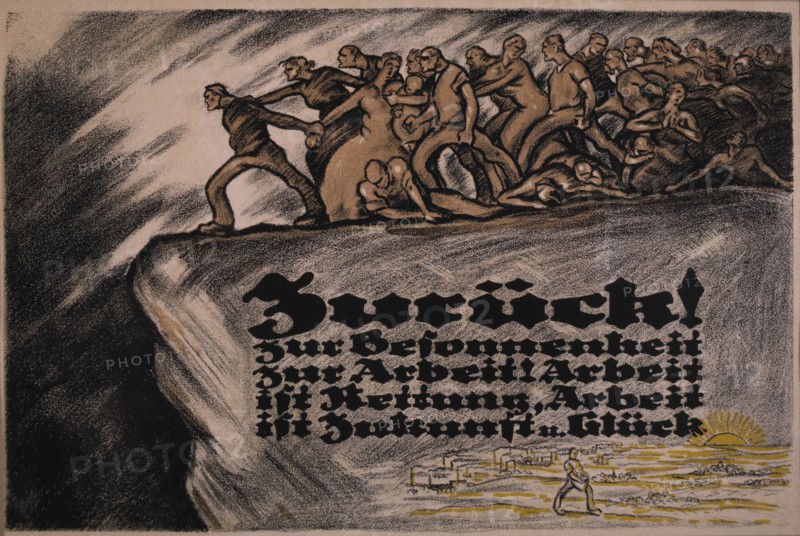 Zurück!
Zur Besonnenheit
Zur Arbeit! Arbeit
ist Rettung, Arbeit
ist Zukunft u. Glück
PHOTO12